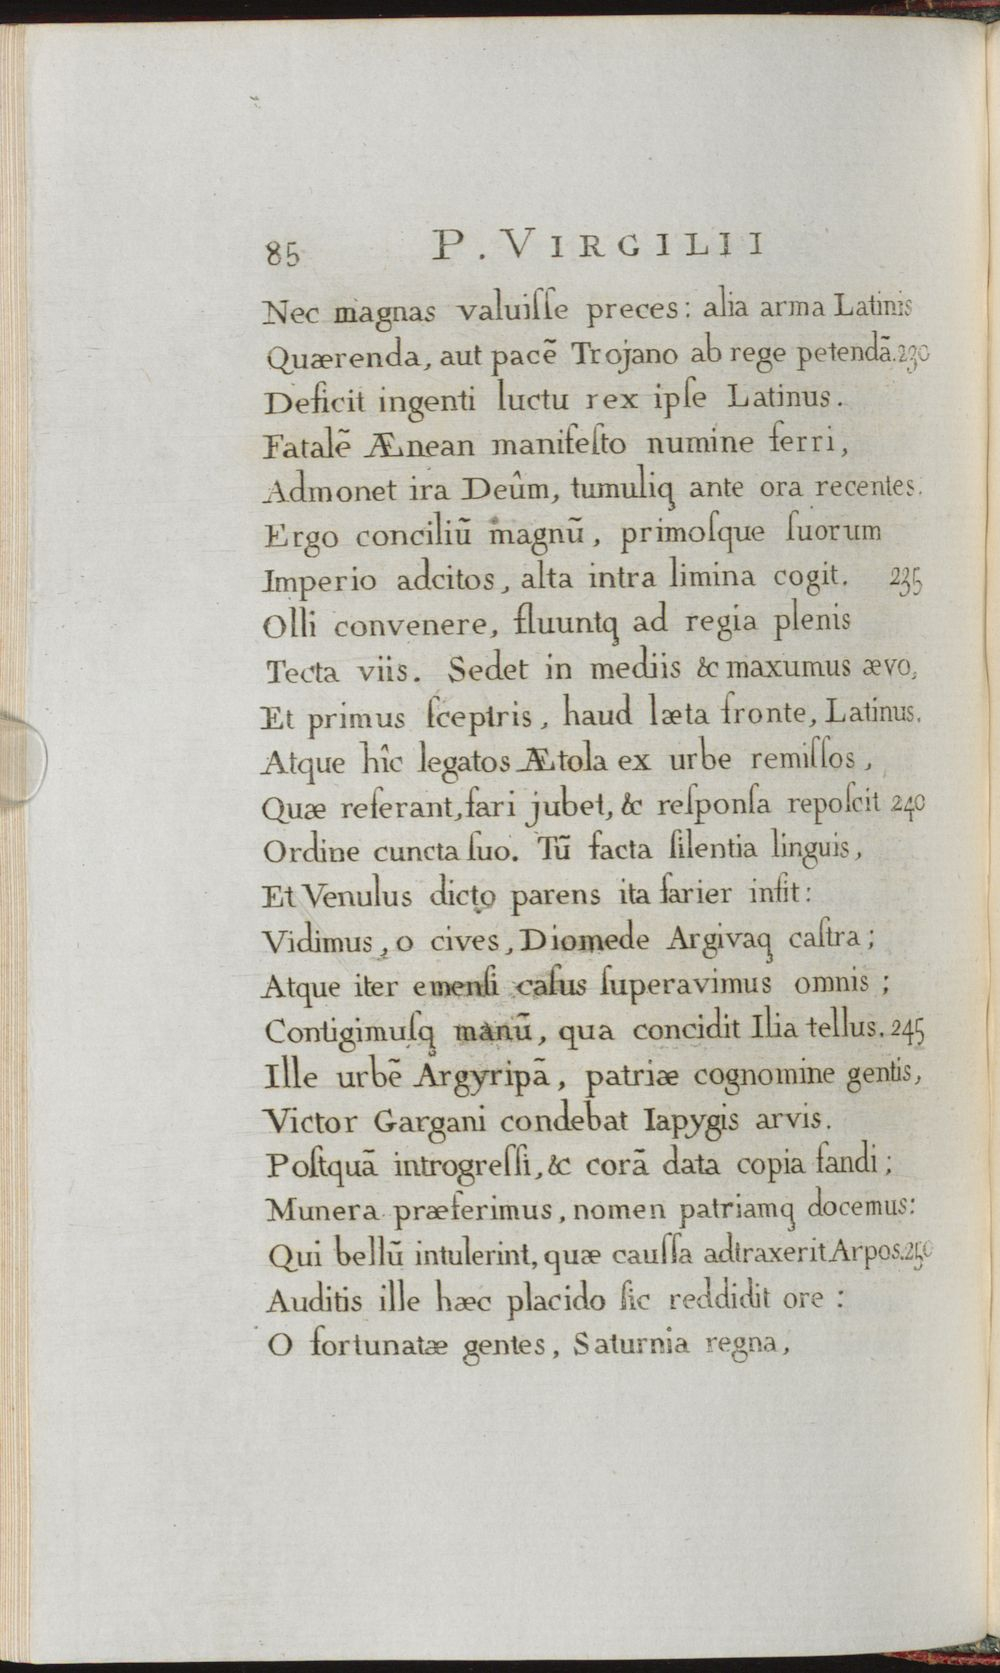 85 P. VIRGILII
Nec magnas valuiſſe preces: alia arma Latinis
Quærenda, aut pacẽ Trojano ab rege petendã. 230
Deficit ingenti luctu rex ipſe Latinus.
Fatalẽ Ænean manifeſto numine ferri,
Admonet ira Deûm, tumuliq̧ ante ora recentes.
Ergo conciliũ magnũ, primoſque ſuorum
Imperio adcitos, alta intra limina cogit. 235
Olli convenere, fluuntq̧ ad regia plenis
Tecta viis. Sedet in mediis & maxumus ævo,
Et primus ſceptris, haud læta fronte, Latinus.
Atque hîc legatos Ætola ex urbe remiſſos,
Quæ referant, fari jubet, & reſponſa repoſcit 240
Ordine cuncta ſuo. Tũ facta ſilentia linguis,
Et Venulus dicto parens ita farier infit:
Vidimus, o cives, Diomede Argivaq̧ caſtra;
Atque iter emenſi caſus ſuperavimus omnis;
Contigimuſq̧ manũ, qua concidit Ilia tellus. 245
Ille urbẽ Argyripã, patriæ cognomine gentis,
Victor Gargani condebat Iapygis arvis.
Poſtquã introgreſſi, & corã data copia fandi;
Munera præferimus, nomen patriamq̧ docemus:
Qui bellũ intulerint, quæ cauſſa adtraxerit Arpos. 250
Auditis ille hæc placido ſic reddidit ore:
O fortunatæ gentes, Saturnia regna,